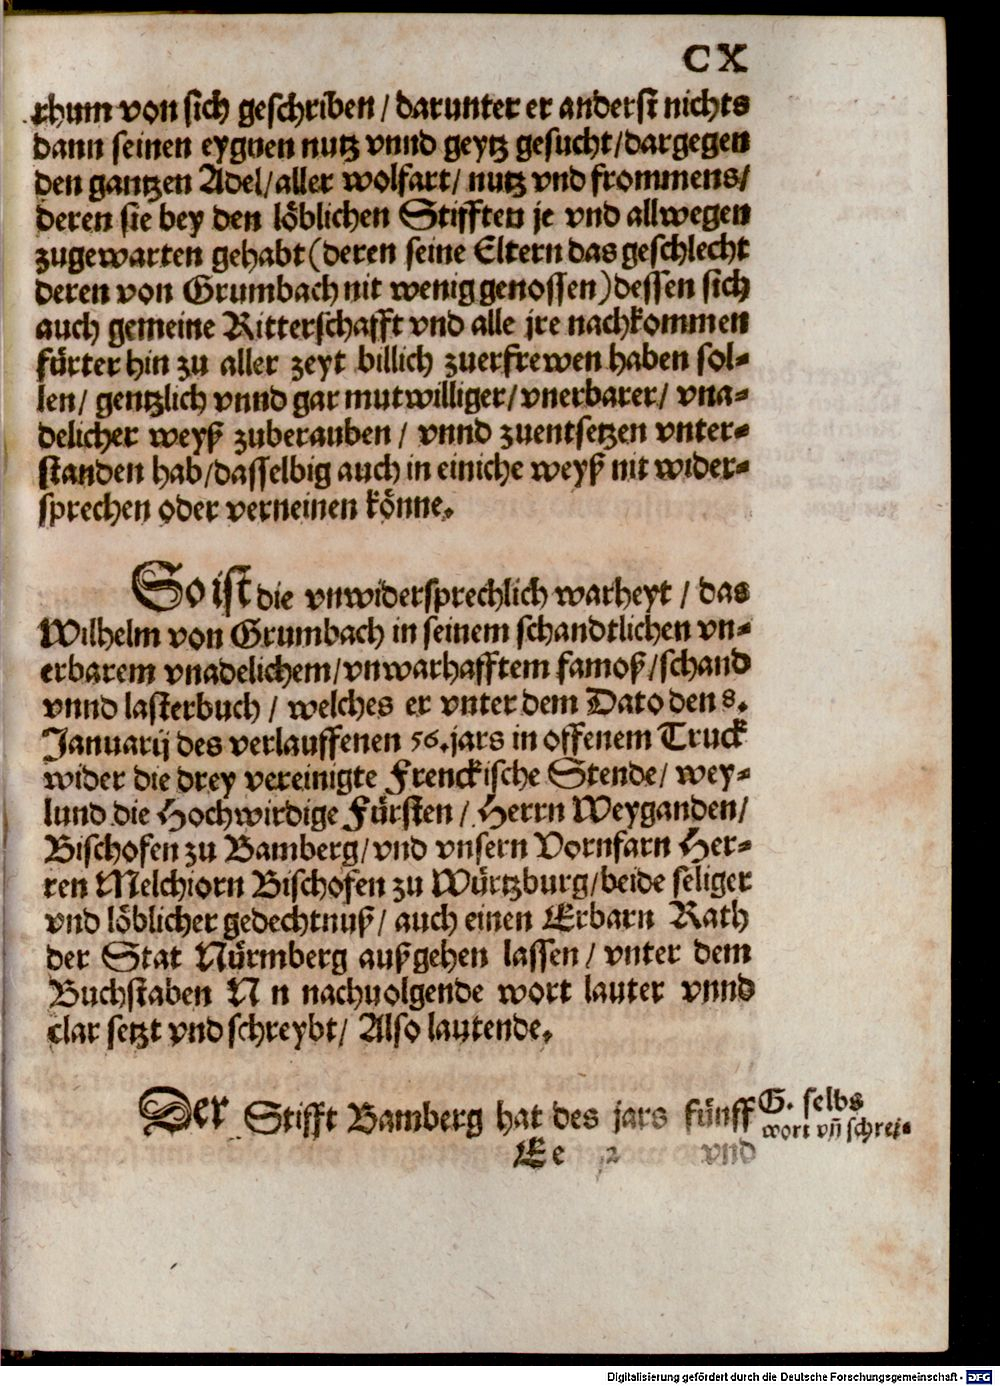 CX
rhum von sich geschriben / darunter er anderst nichts
dann seinen eygnen nutz vnnd geytz gesucht / dargegen
den gantzen Adel / aller wolfart / nutz vnd frommens /
deren sie bey den löblichen Stifften je vnd allwegen
zugewarten gehabt (deren seine Eltern das geschlecht
deren von Grumbach nit wenig genossen) dessen sich
auch gemeine Ritterschafft vnd alle jre nachkommen
fürter hin zu aller zeyt billich zuerfrewen haben sol-
len / gentzlich vnnd gar mutwilliger / vnerbarer / vna-
delicher weyß zuberauben / vnnd zuentsetzen vnter-
standen hab / dasselbig auch in einiche weyß nit wider-
sprechen oder verneinen könne.
So ist die vnwidersprechlich warheyt / das
Wilhelm von Grumbach in seinem schandtlichen vn-
erbarem vnadelichem / vnwarhafftem famoß / schand
vnnd lasterbuch / welches er vnter dem Dato den 8.
Januarij des verlauffenen 56. jars in offenem Truck
wider die drey vereinigte Frenckische Stende / wey-
lund die Hochwirdige Fürsten / Herrn Weyganden /
Bischofen zu Bamberg / vnd vnsern Vornfarn Her-
ren Melchiorn Bischofen zu Würtzburg / beide seliger
vnd löblicher gedechtnuß / auch einen Erbarn Rath
der Stat Nürmberg außgehen lassen / vnter dem
Buchstaben N n nachuolgende wort lauter vnnd
clar setzt vnd schreybt / Also lautende.
Der Stifft Bamberg hat des jars fünff
G. selbs
wort vñ schrei-
Ee 2 vnd
Digitalisierung gefördert durch die Deutsche Forschungsgemeinschaft - DFG